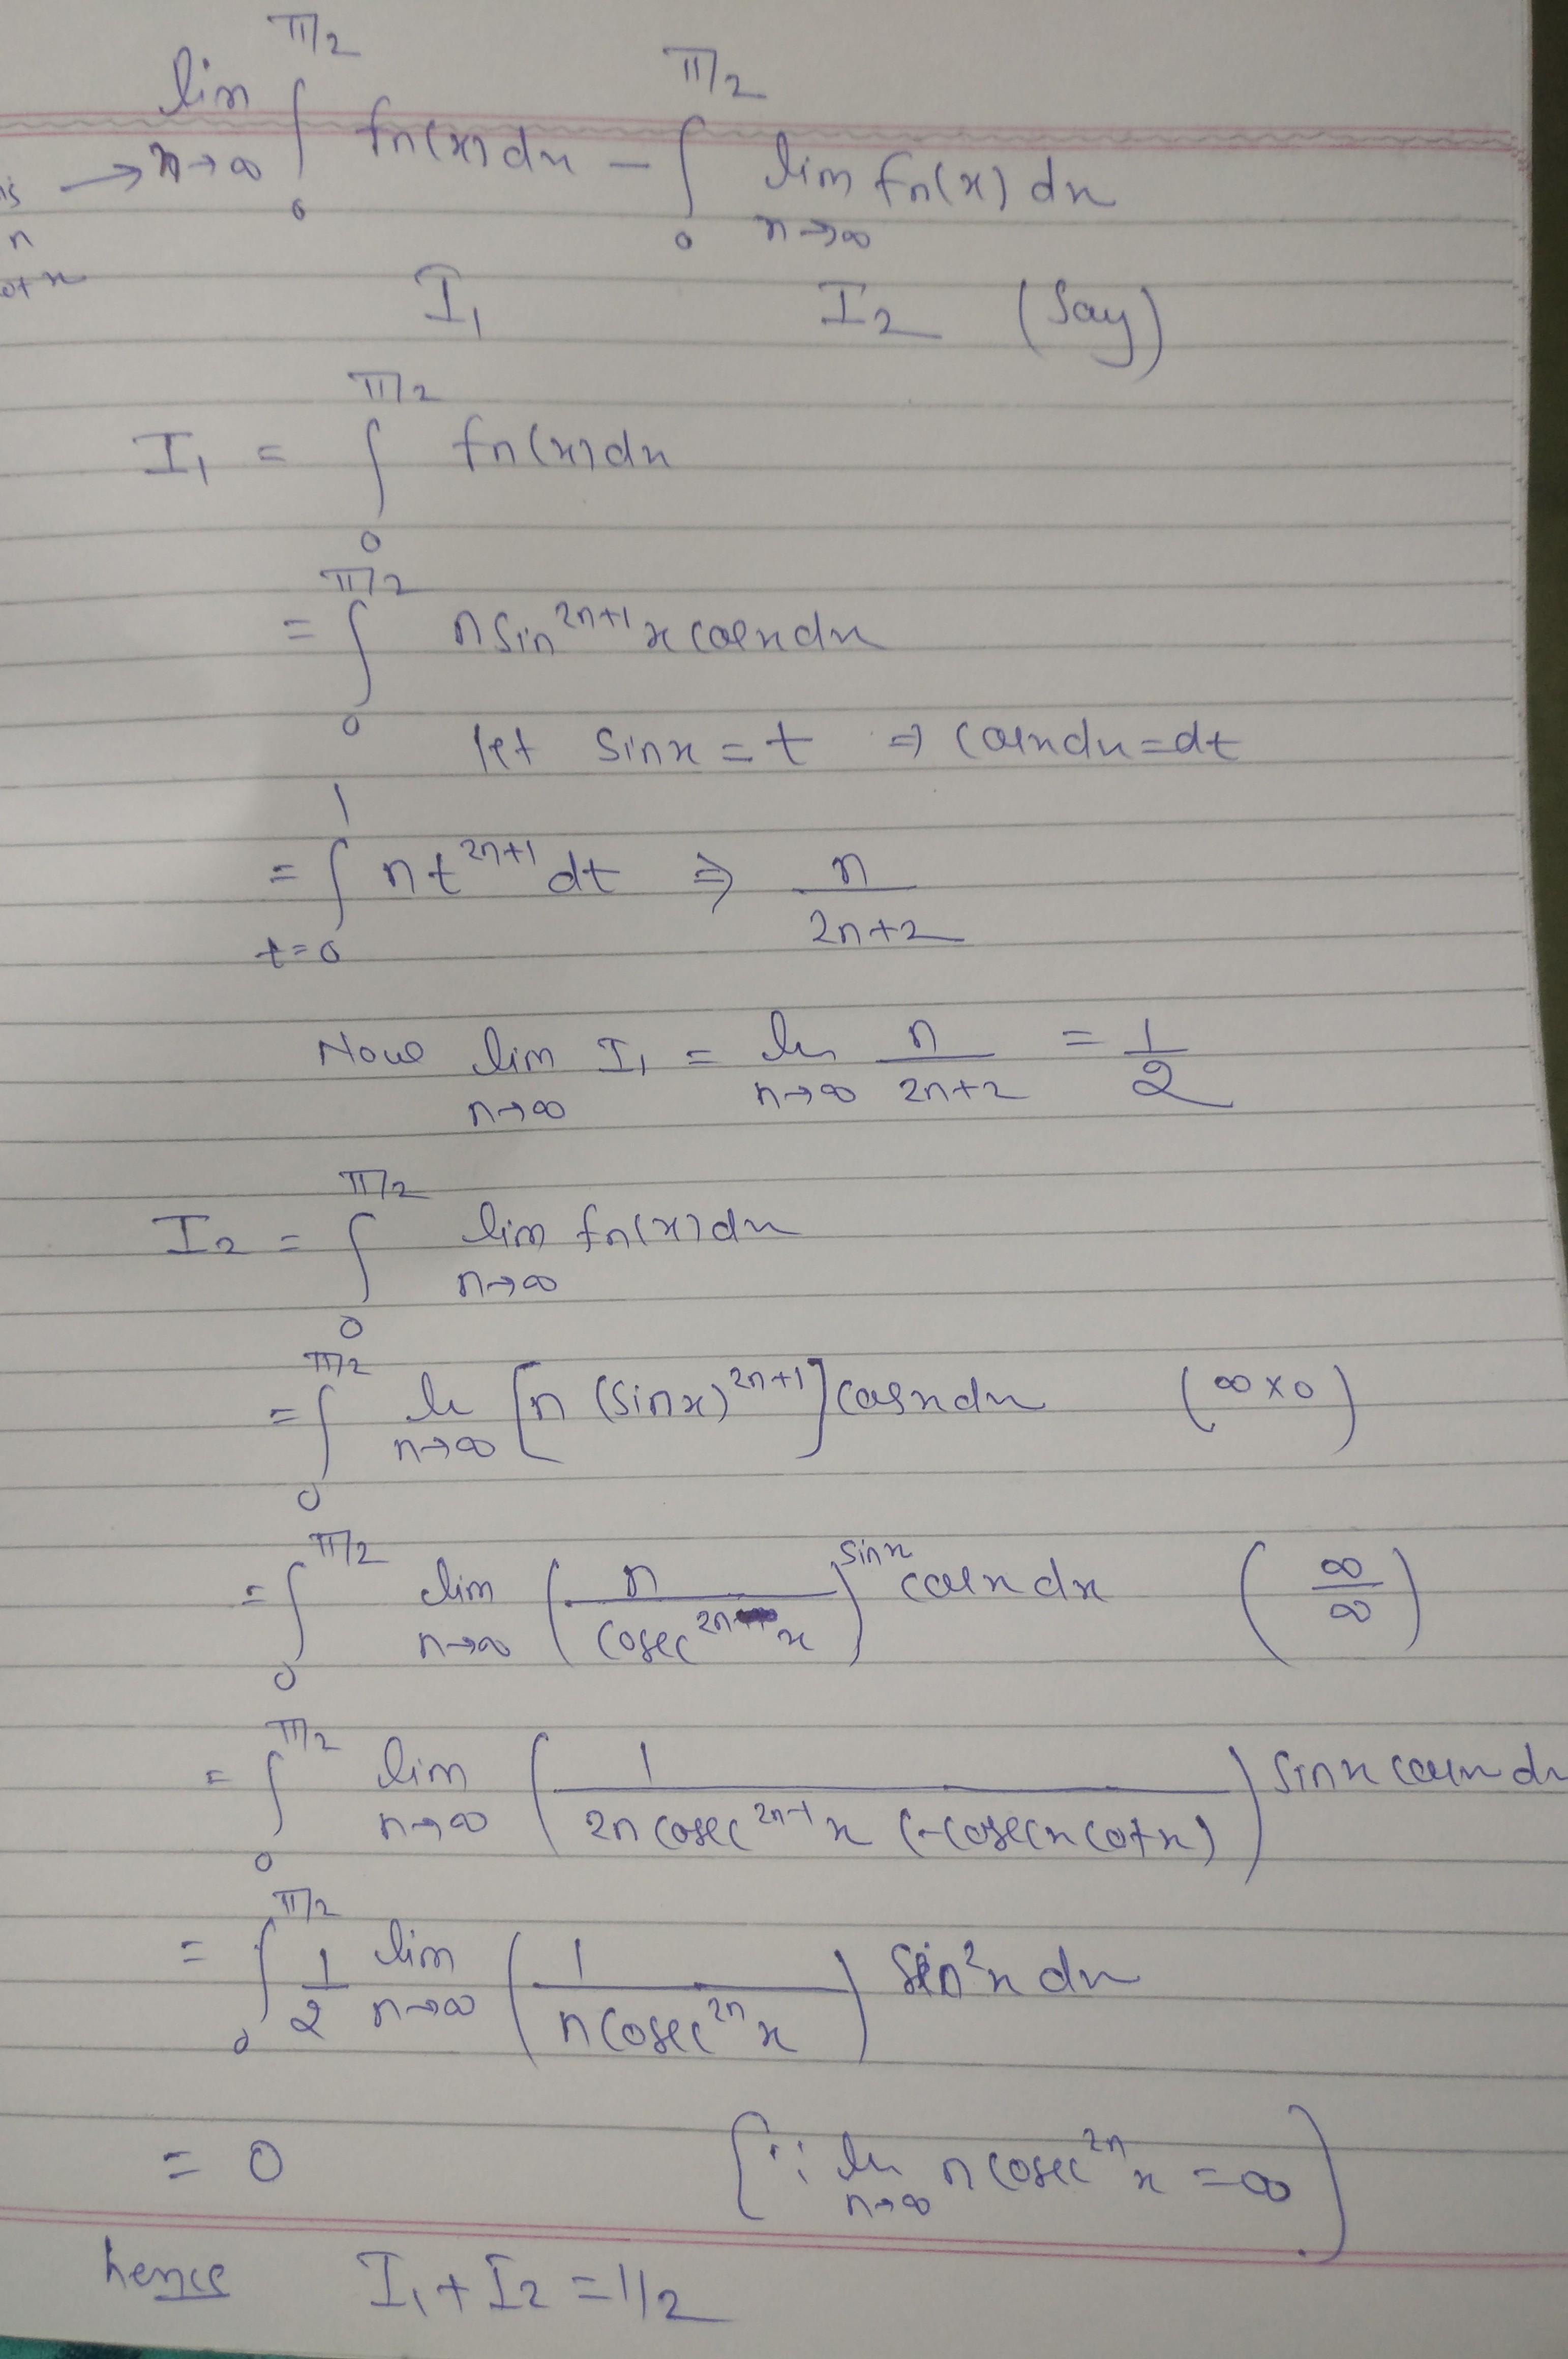 lim_{n→∞} ∫_0^{π/2} fn(x)dx − ∫_0^{π/2} lim_{n→∞} fn(x) dx
is →
n
ot x
I₁ I₂ (Say)
I₁ = ∫_0^{π/2} fn(x)dx
= ∫_0^{π/2} n sin^{2n+1} x cosx dx
let sinx = t ⇒ cosxdx = dt
= ∫_{t=0}^{1} n t^{2n+1} dt ⇒ n/(2n+2)
Now lim_{n→∞} I₁ = lim_{n→∞} n/(2n+2) = 1/2
I₂ = ∫_0^{π/2} lim_{n→∞} fn(x)dx
= ∫_0^{π/2} lim_{n→∞} [n (sinx)^{2n+1}] cosx dx (∞×0)
= ∫_0^{π/2} lim_{n→∞} (n/cosec^{2n} x) sinx cosx dx (∞/∞)
= ∫_0^{π/2} lim_{n→∞} (1/(2n cosec^{2n-1} x (-cosecx cotx))) sinx cosx dx
= ∫_0^{π/2} 1/2 lim_{n→∞} (1/(n cosec^{2n} x)) sin²x dx
= 0 [∵ lim_{n→∞} n cosec^{2n} x = ∞]
hence I₁ + I₂ = 1/2